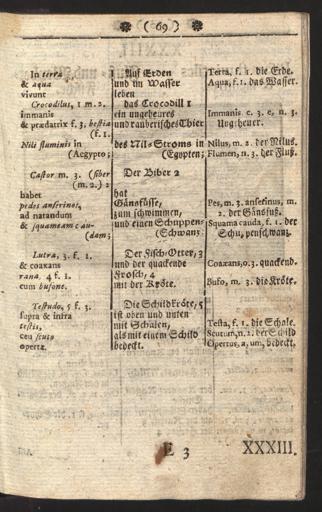 ( 69 )
In terra Auf Erden Terra, f. 1. die Erde.
& aqua und im Wasser Aqua, f. 1. das Wasser.
vivunt leben
Crocodilus, 1 m. 2. das Crocodill 1
immanis ein ungeheures Immanis c. 3. e, n. 3.
& prædatrix f. 3. bestia und rauberisches Thier Ungeheuer.
(f. 1.
Nili fluminis in des Nil-Stroms in Nilus, m. 2. der Nilus.
(Aegypto; (Egypten; Flumen, n. 3. der Fluß.
Castor m. 3. (fiber Der Biber 2
(m. 2.) 2
habet hat
pedes anserinos, Gänsfüsse, Pes, m. 3. anserinus, m.
ad natandum zum schwimmen, 2. der Gänsfuß.
& squameam cau- und einen Schuppen- Squamea cauda, f. 1. der
(dam; (Schwanz Schupenschwanz.
Lutra, 3. f. 1. Der Fisch-Otter, 3
& coaxans und der quackende Coaxans, o. 3. quackend.
rana, 4 f. 1. Frosch, 4
cum bufone. mit der Kröte. Bufo, m. 3. die Kröte.
Testudo, 5 f. 3. Die Schildkröte, 5
supra & infra ist oben und unten
testis, mit Schalen, Testa, f. 1. die Schale.
ceu scuto als mit einem Schild Scutum, n. 2. der Schild
operta. bedeckt. Opertus, a, um, bedeckt.
E 3 XXXIII.